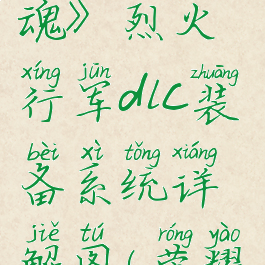 魂》烈火
xíng jūn zhuāng
行军dlc装
bèi xì tǒng xiáng
备系统详
jiě tú róng yào
解图(荣耀